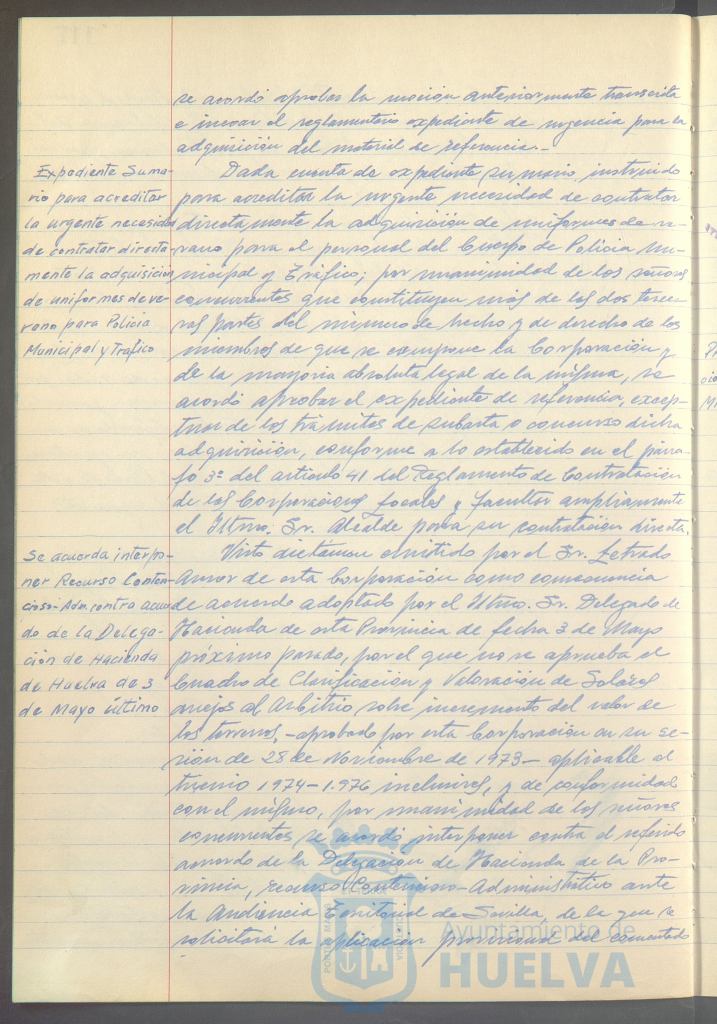 se acordó aprobar la moción anteriormente transcrita
e incoar el reglamentario expediente de urgencia para la
adquisición del material de referencia.-
Expediente Suma-
rio para acreditar
la urgente necesidad
de contratar directa-
mente la adquisición
de uniformes de ve-
rano para Policia
Municipal y Tráfico
Dada cuenta de expediente sumario instruido
para acreditar la urgente necesidad de contratar
directamente la adquisición de uniformes de ve-
rano para el personal del Cuerpo de Policia Mu-
nicipal y Tráfico; por unanimidad de los señores
concurrentes que constituyen más de las dos terce-
ras partes del número de hecho y de derecho de los
miembros de que se compone la Corporación y
de la mayoria absoluta legal de la misma, se
acordó aprobar el expediente de referencia, excep-
tuar de los trámites de subasta o concurso dicha
adquisición, conforme a lo establecido en el párra-
fo 3º del articulo 41 del Reglamento de Contratación
de las Corporaciones Locales y facultar ampliamente
el Iltmo. Sr. Alcalde para su contratación directa.
Se acuerda interpo-
ner Recurso Conten-
cioso-Adm. contra acuer-
do de la Delega-
ción de Hacienda
de Huelva de 3
de Mayo último
Visto dictámen emitido por el Sr. Letrado
Asesor de esta Corporación como consecuencia
de acuerdo adoptado por el Iltmo. Sr. Delegado de
Hacienda de esta Provincia de fecha 3 de Mayo
próximo pasado, por el que no se aprueba el
Cuadro de Clasificación y Valoración de Solares
anejos al Arbitrio sobre incremento del valor de
los terrenos, -aprobado por esta Corporación en su se-
sión de 28 de Noviembre de 1973- aplicable al
trienio 1974-1.976 inclusives, y de conformidad
con el mismo, por unanimidad de los señores
concurrentes se acordó interponer contra el referido
acuerdo de la Delegación de Hacienda de la Pro-
vincia, recurso Contencioso-Administrativo ante
la Audiencia Territorial de Sevilla, de la que se
solicitará la aplicación provisional del comentado
Ayuntamiento de
HUELVA